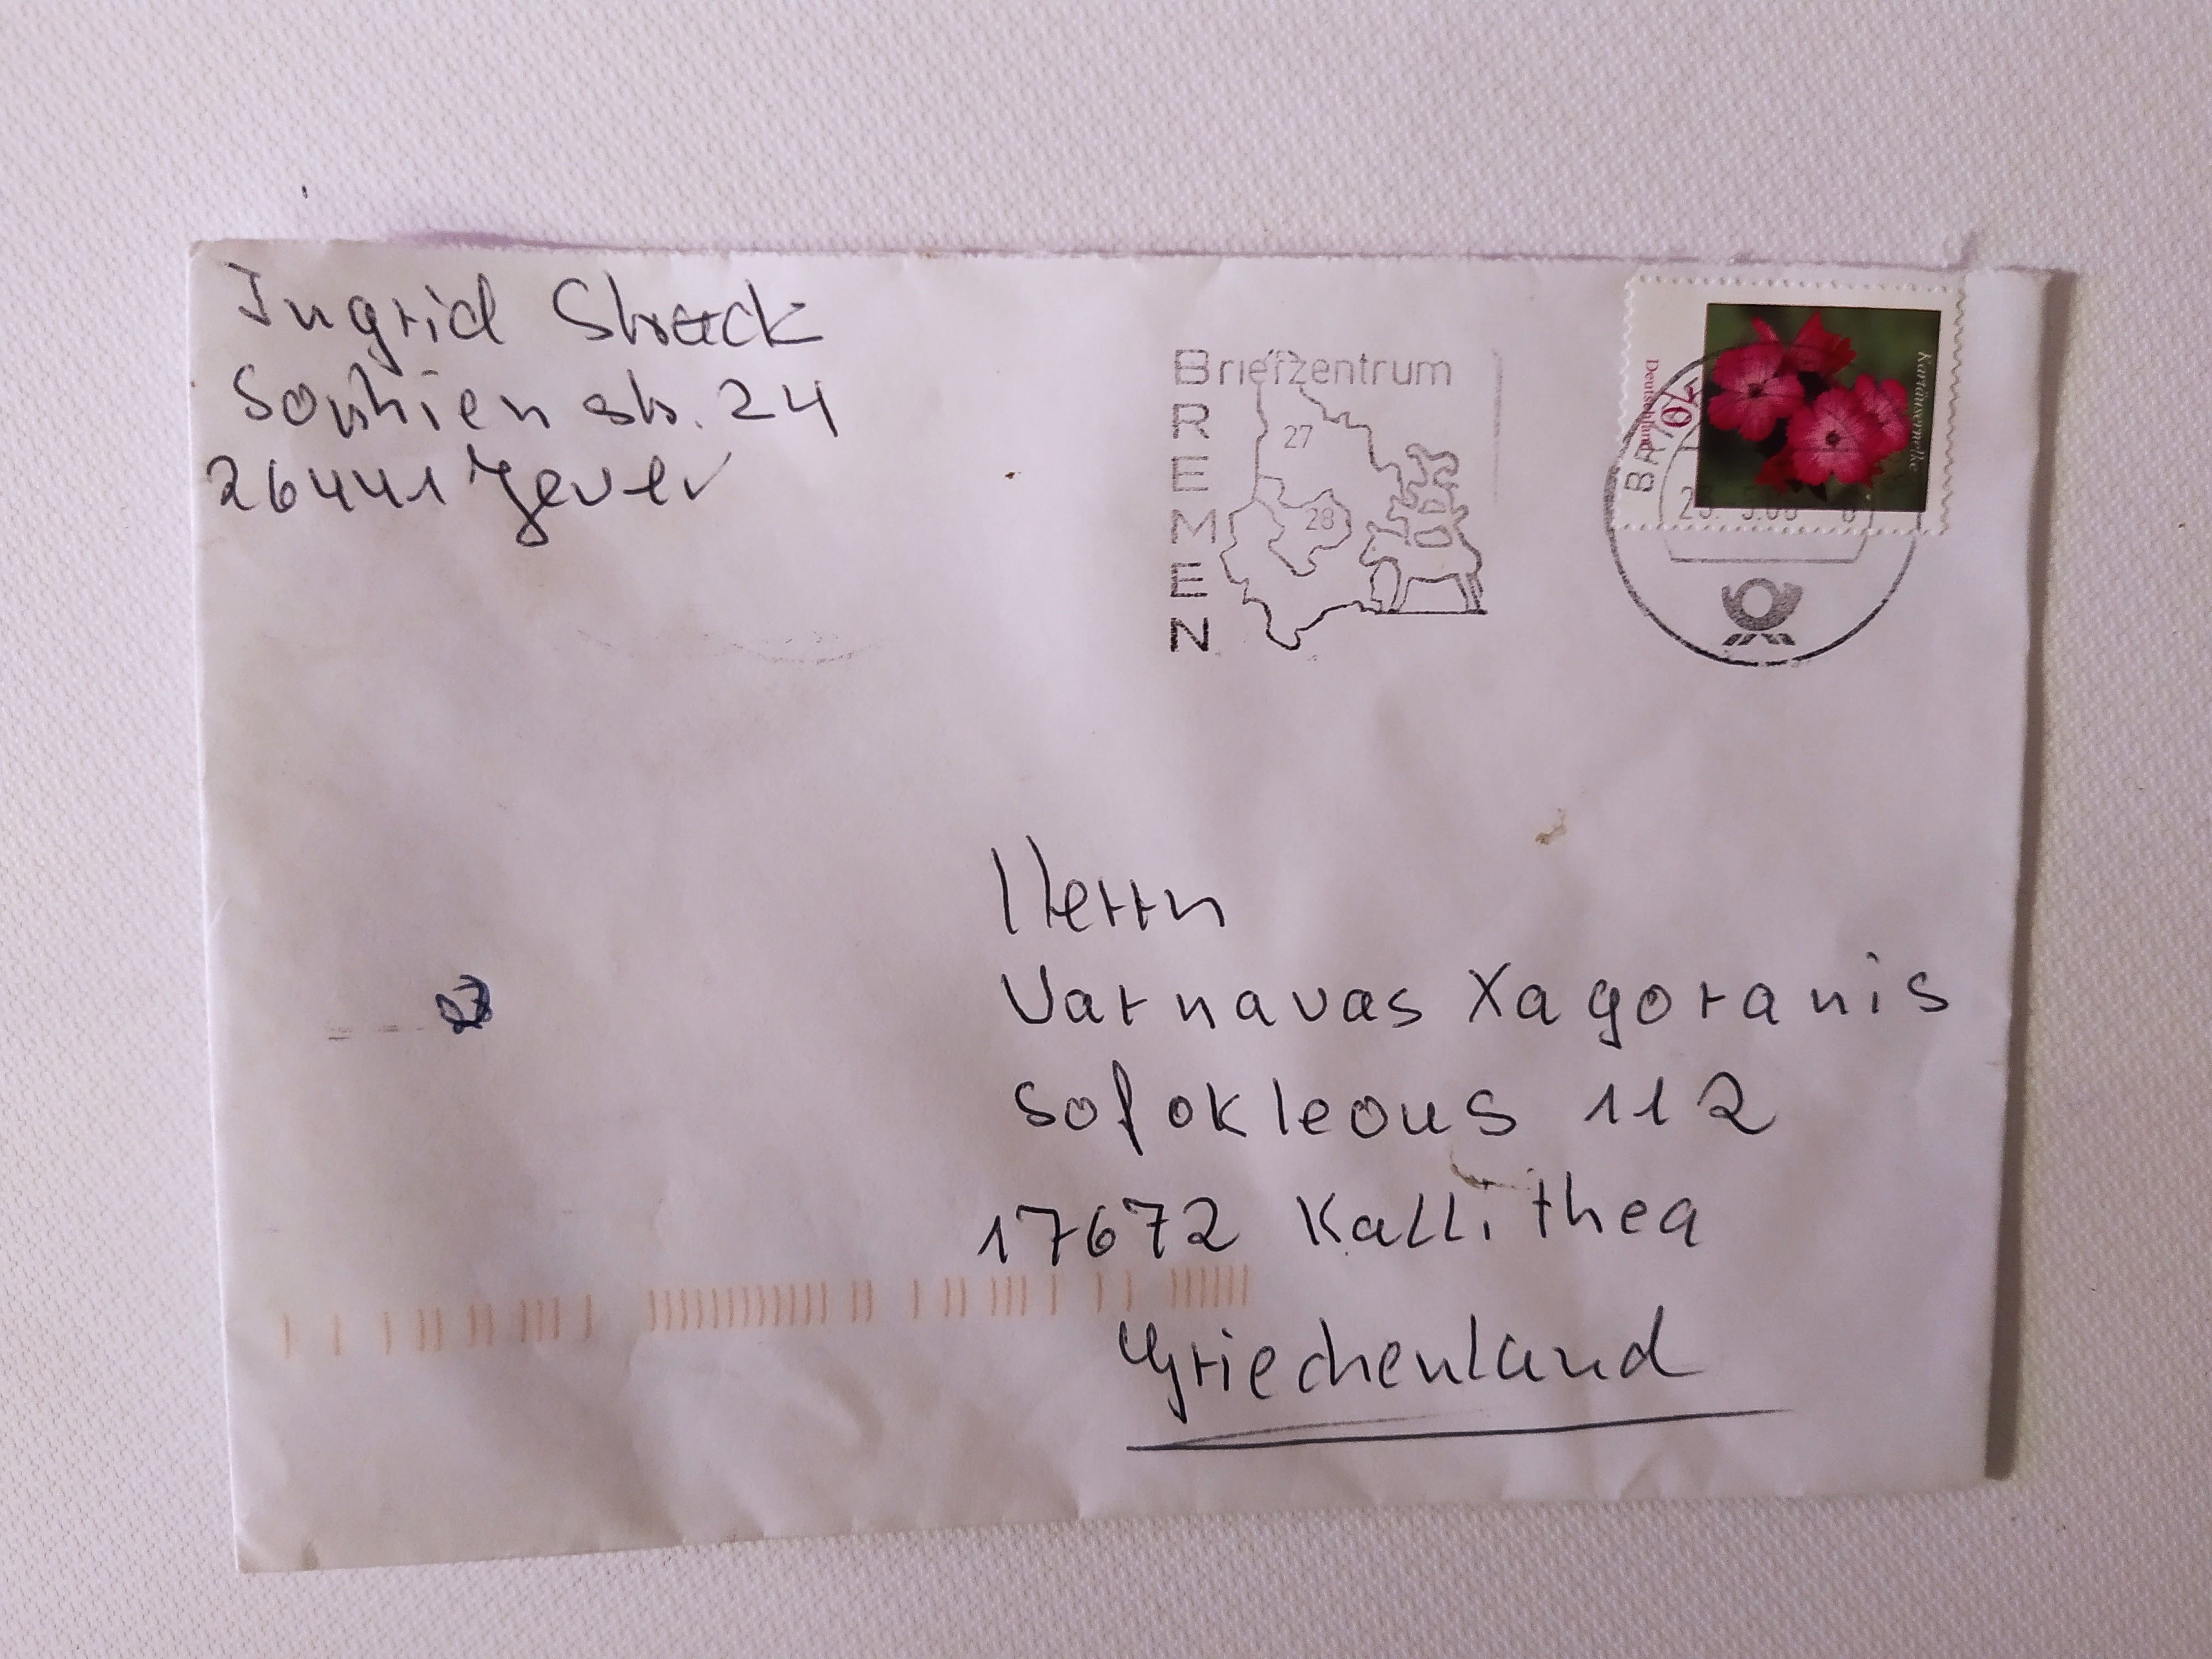 Ingrid Strack
Sophienstr. 24
26441 Jever
Briefzentrum
BREMEN
27
28
Deutschland
70
Kartäusernelke
BRI
Herrn
Varnavas Xagoranis
Sofokleous 112
17672 Kallithea
Griechenland